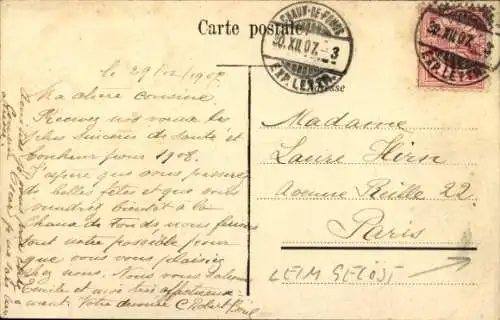 Carte postale
CHAUX-DE-FONDS
30.XII.07. 3
EXP. LETTR.
30.XII.07
EXP. LETTR.
Adresse
le 29/12/1907
Ma chère cousine
Recevez nos voeux les
plus sincères de santé et
bonheur pour 1908.
J'espère que vous passerez
de belles fêtes et que vous
voudrez bientôt à la
Chaux de Fonds nous ferons
tout notre possible pour
que vous vous plaisiez
chez nous. Nous vous saluons
Emile et moi très affectueuse-
ment. Votre dévouée C Robert
Madame
Laure Hirn
Avenue Reille 22
Paris
LEIM GELÖST